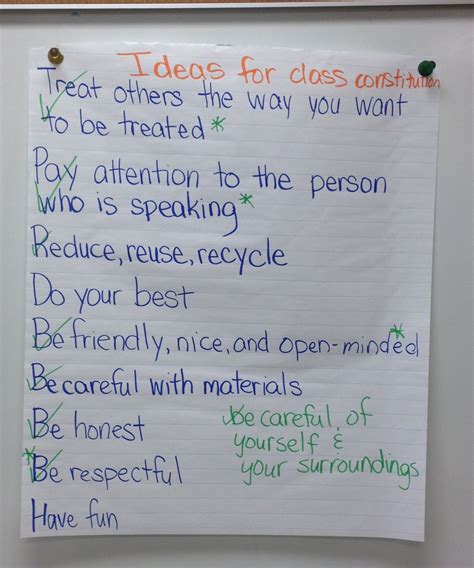 Ideas for class constitution
Treat others the way you want
to be treated*
Pay attention to the person
who is speaking*
Reduce, reuse, recycle
Do your best
Be friendly, nice, and open-minded*
Be careful with materials
Be honest
*Be respectful
Have fun
be careful of
yourself &
your surroundings